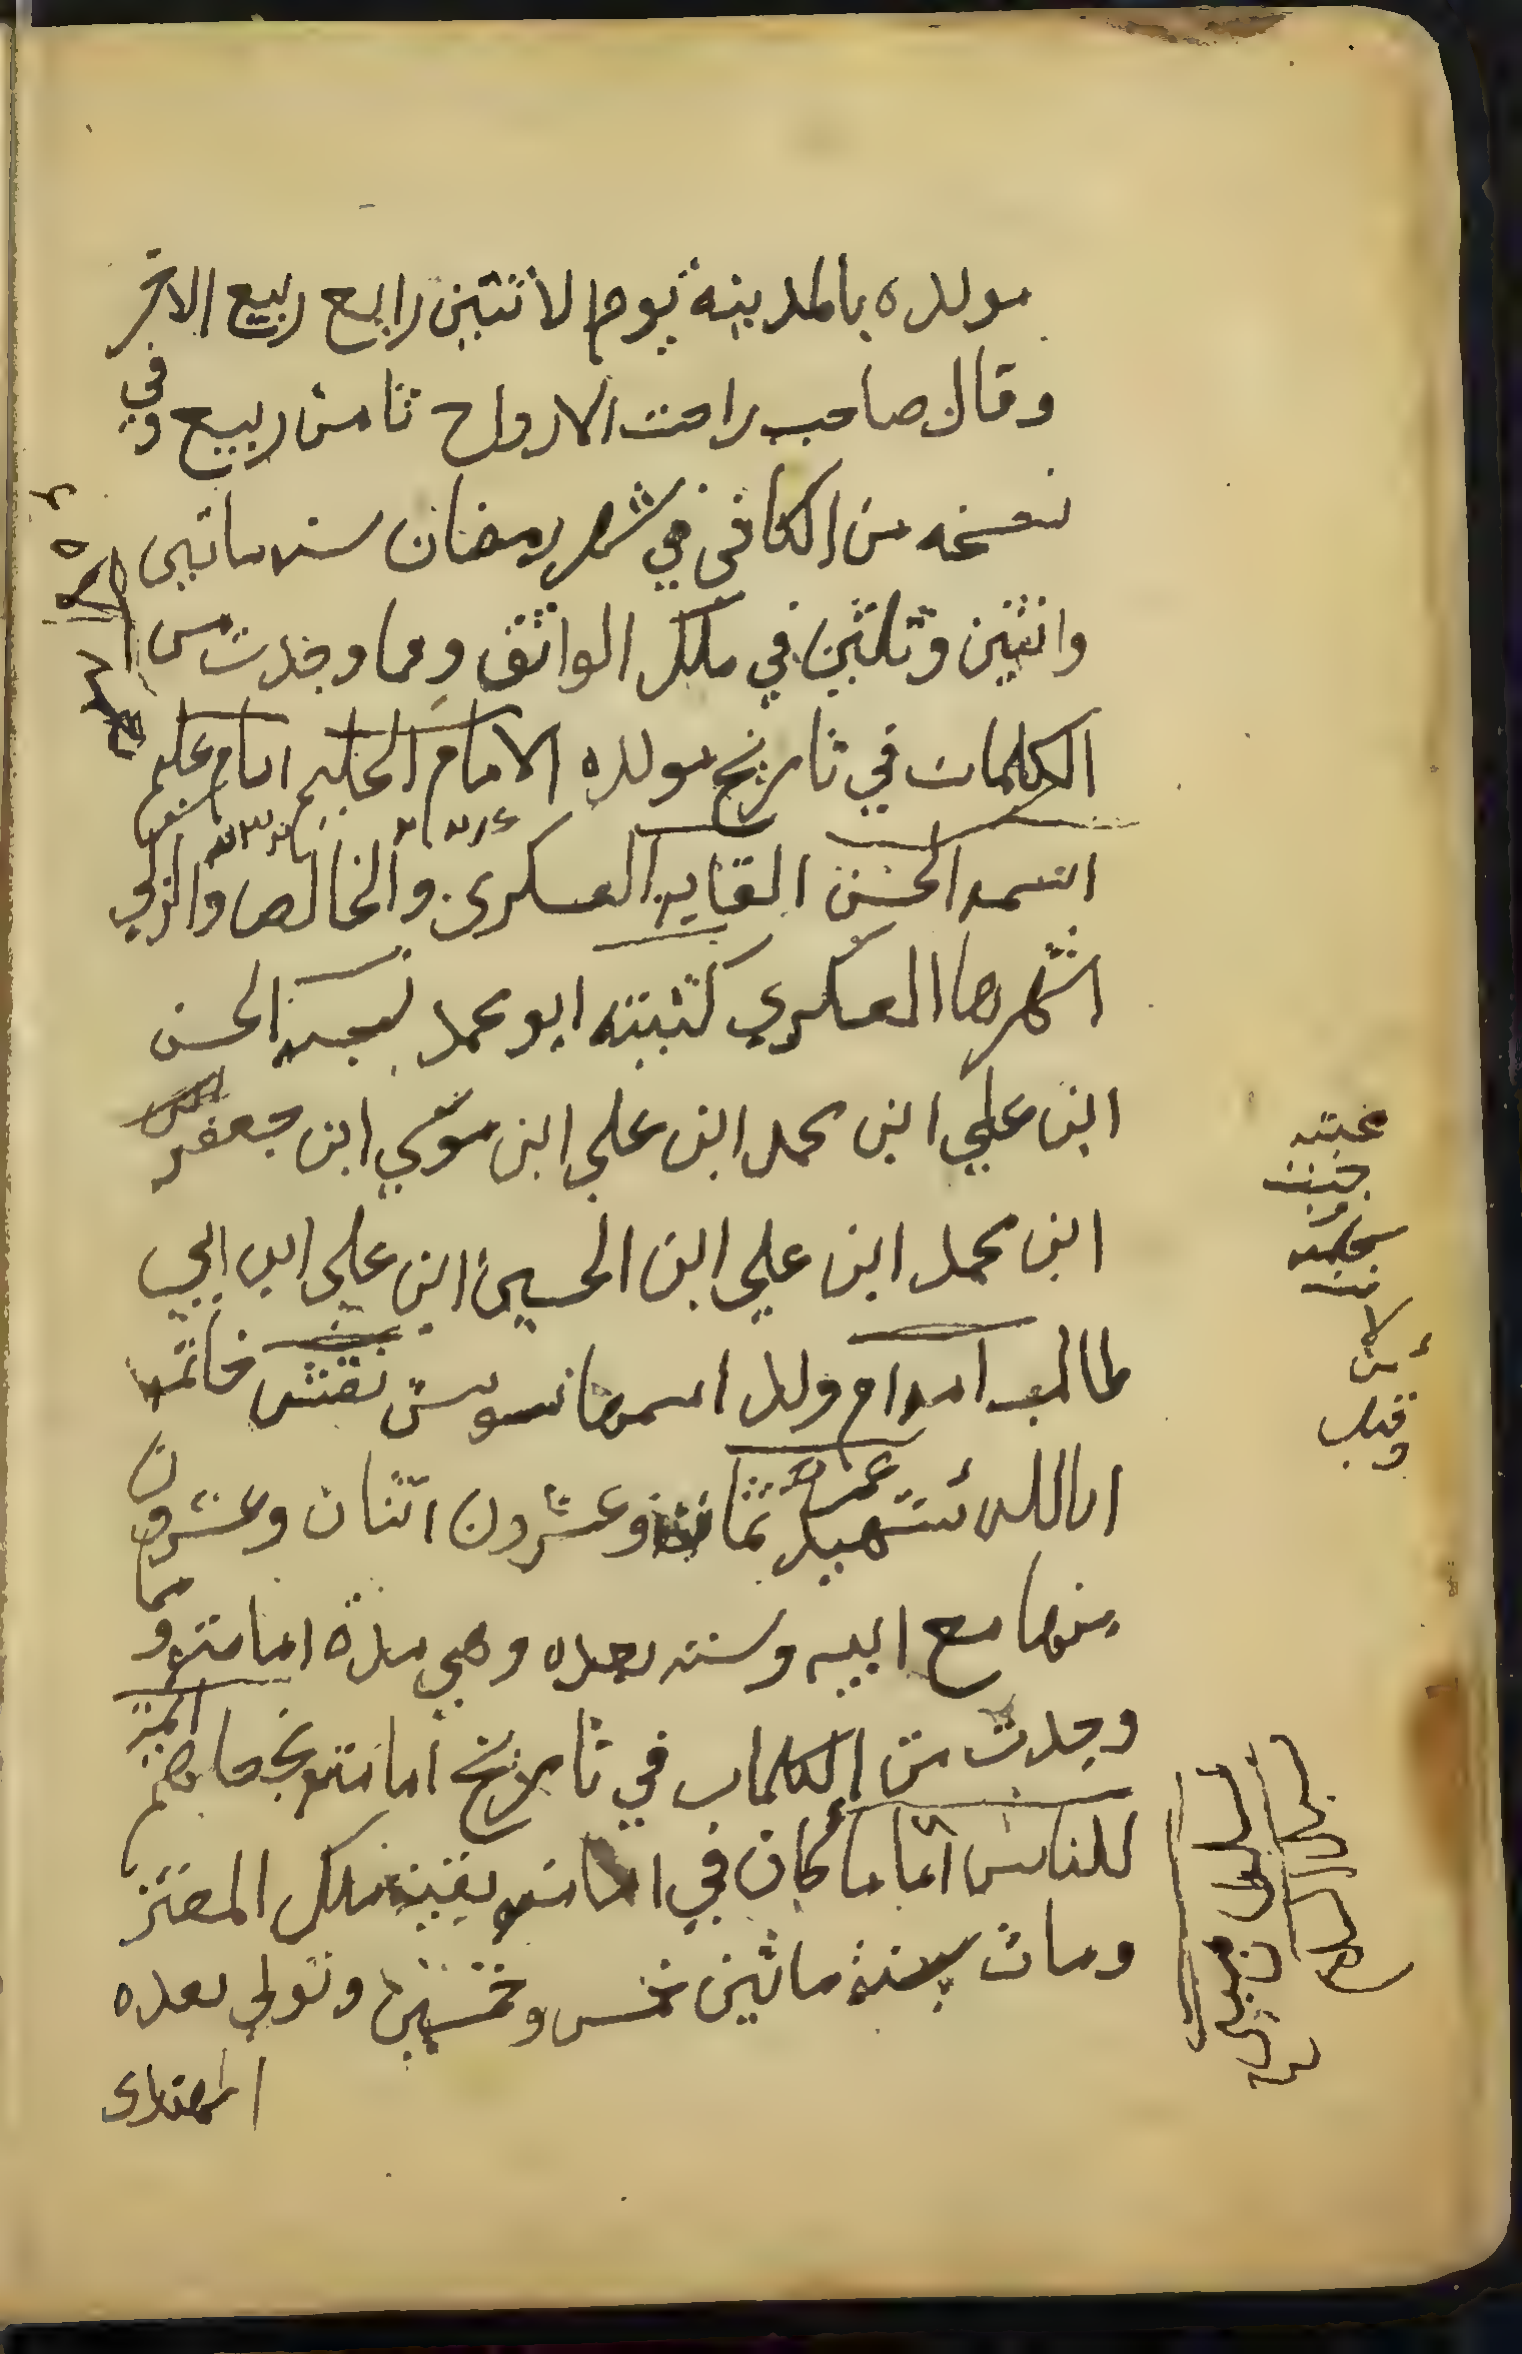 مولده بالمدينة يوم الاثنين رابع ربيع الاخر
وقال صاحب راحت الارواح ثامن ربيع وفي
نسخه من الكافي في شهر رمضان سنه ماتين
واثنين وثلثين في ملك الواثق ومما وجدت من
الكلمات في تاريخ مولده الامام الحليم امام عليم
اسمه الحسن القابه العسكري والخالص والزكي
اشهرها العسكري كنيته ابو محمد نسبه الحسن
ابن علي ابن محمد ابن علي ابن موسي ابن جعفر
ابن محمد ابن علي ابن الحسين ابن علي ابن ابي
طالب امه ام ولد اسمها سوسن نقش خاتمه
انا لله شهيد عمره ثمانية وعشرون اثنان وعشرون
منها مع ابيه وسنه بعده وهي مدة امامته ومما
وجدت من الكلمات في تاريخ امامته
للناس اماما كان في امامته بقية ملك المعتز
ومات سنة ماتين خمس وخمسين وتولي بعده
المهتدي